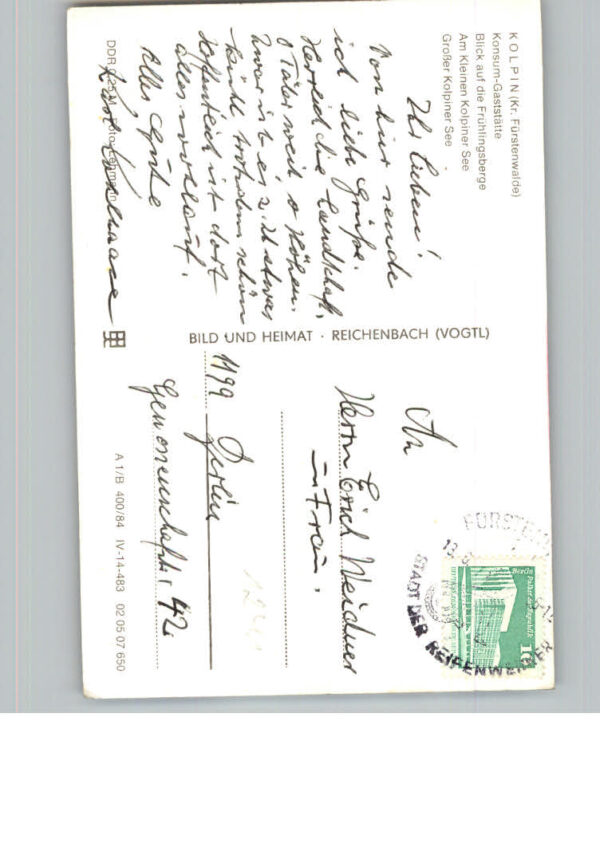 KOLPIN (Kr. Fürstenwalde)
Konsum-Gaststätte
Blick auf die Frühlingsberge
Am Kleinen Kolpiner See
Großer Kolpiner See
Ihr Lieben!
Von hier sende
ich liebe Grüße.
Herrlich die Landschaft,
o Täler weit o Höhen.
Zwar ist es z. Zt etwas
kühl, trotzdem schön
Hoffentlich ist dort
alles wohlauf.
Alles Gute
DDR
BILD UND HEIMAT · REICHENBACH (VOGTL)
An
Herrn Erich Weidner
u Frau.
1199 Berlin
Genossenschaftstr 42
A 1/B 400/84 IV-14-483 02 05 07 650
Berlin Palast der Republik
10
STADT DER REIFENWERKER